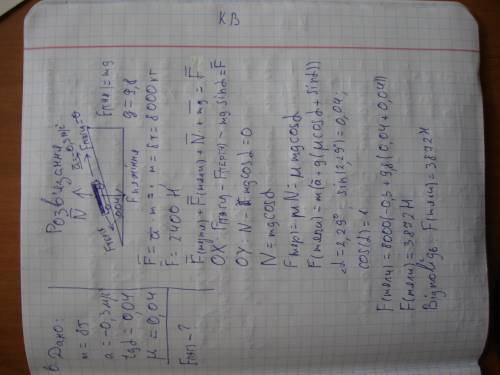 КВ
Дано:
m = 8т
a = -0,3 м/с²
tg α = 0,04
μ = 0,04
Розвʼязання
N
F тяжіння
Fтяж = mg
g = 9,8
F = a m = ; m = 8т = 8000 кг
F = 2400 Н
F(тяги) + F(тели) + N + mg = F
OX Fтягу - Fтертя - mg sinα = F
OY - N - mg cosα = 0
N = mg cosα
Fтер) = μN = μmg cosα
F(тели) = m(a + g(μ cosα + sinα))
α = 2,29° - sin(2,29) = 0,04;
cos(α) = 1
F(тели) = 8000(-0,3 + 9,8(0,04 + 0,04))
F(тели) = 3872 Н
Відповідь F(тели) = 3872 Н